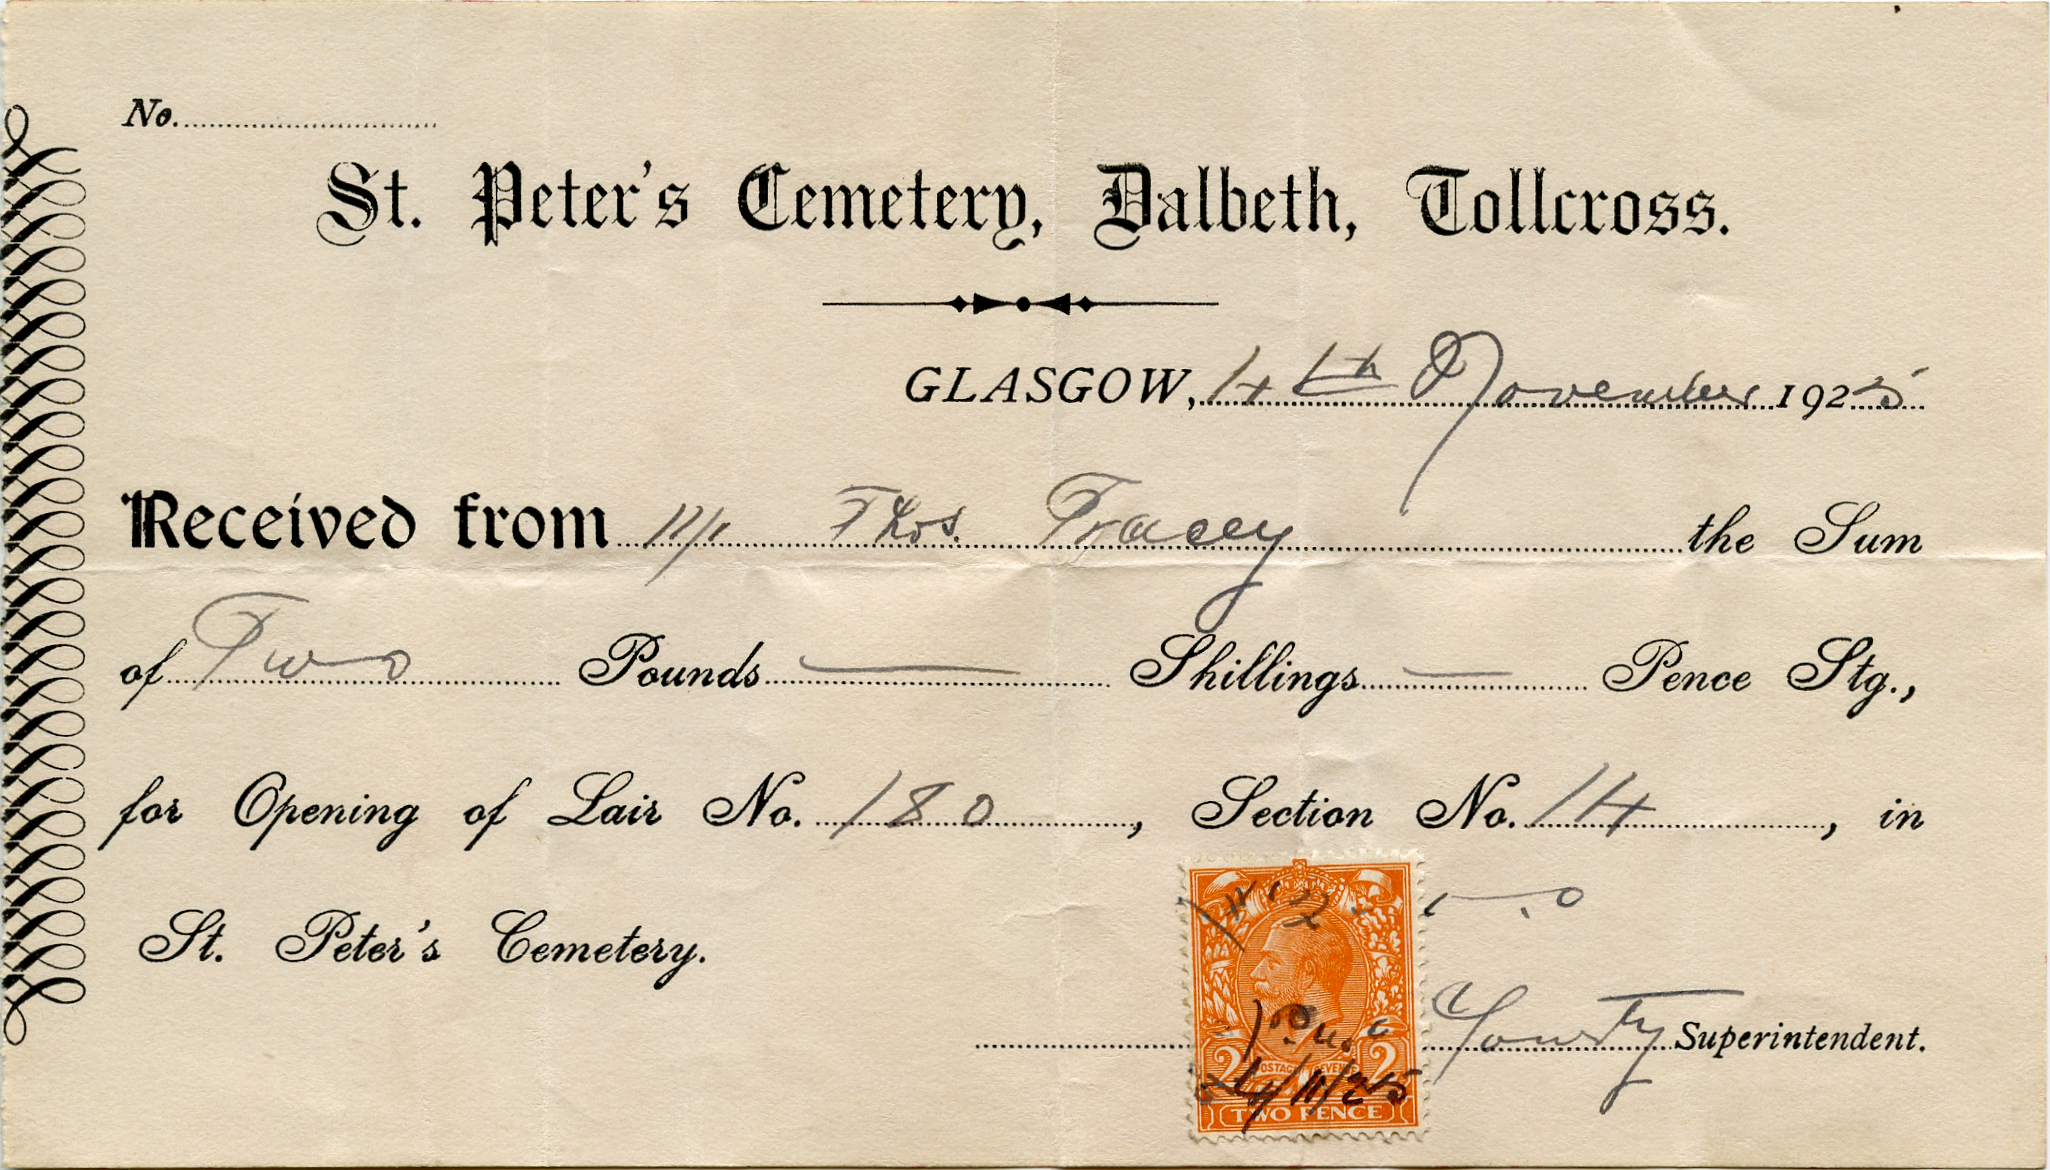 No.
St. Peter's Cemetery, Dalbeth, Tollcross.
GLASGOW, 4th November 1925
Received from Mr Thos. Tracey the Sum
of Two Pounds — Shillings — Pence Stg.,
for Opening of Lair No. 180, Section No. 14, in
St. Peter's Cemetery.
£2
Superintendent.
2 POSTAGE REVENUE 2
4/11/25
TWO PENCE